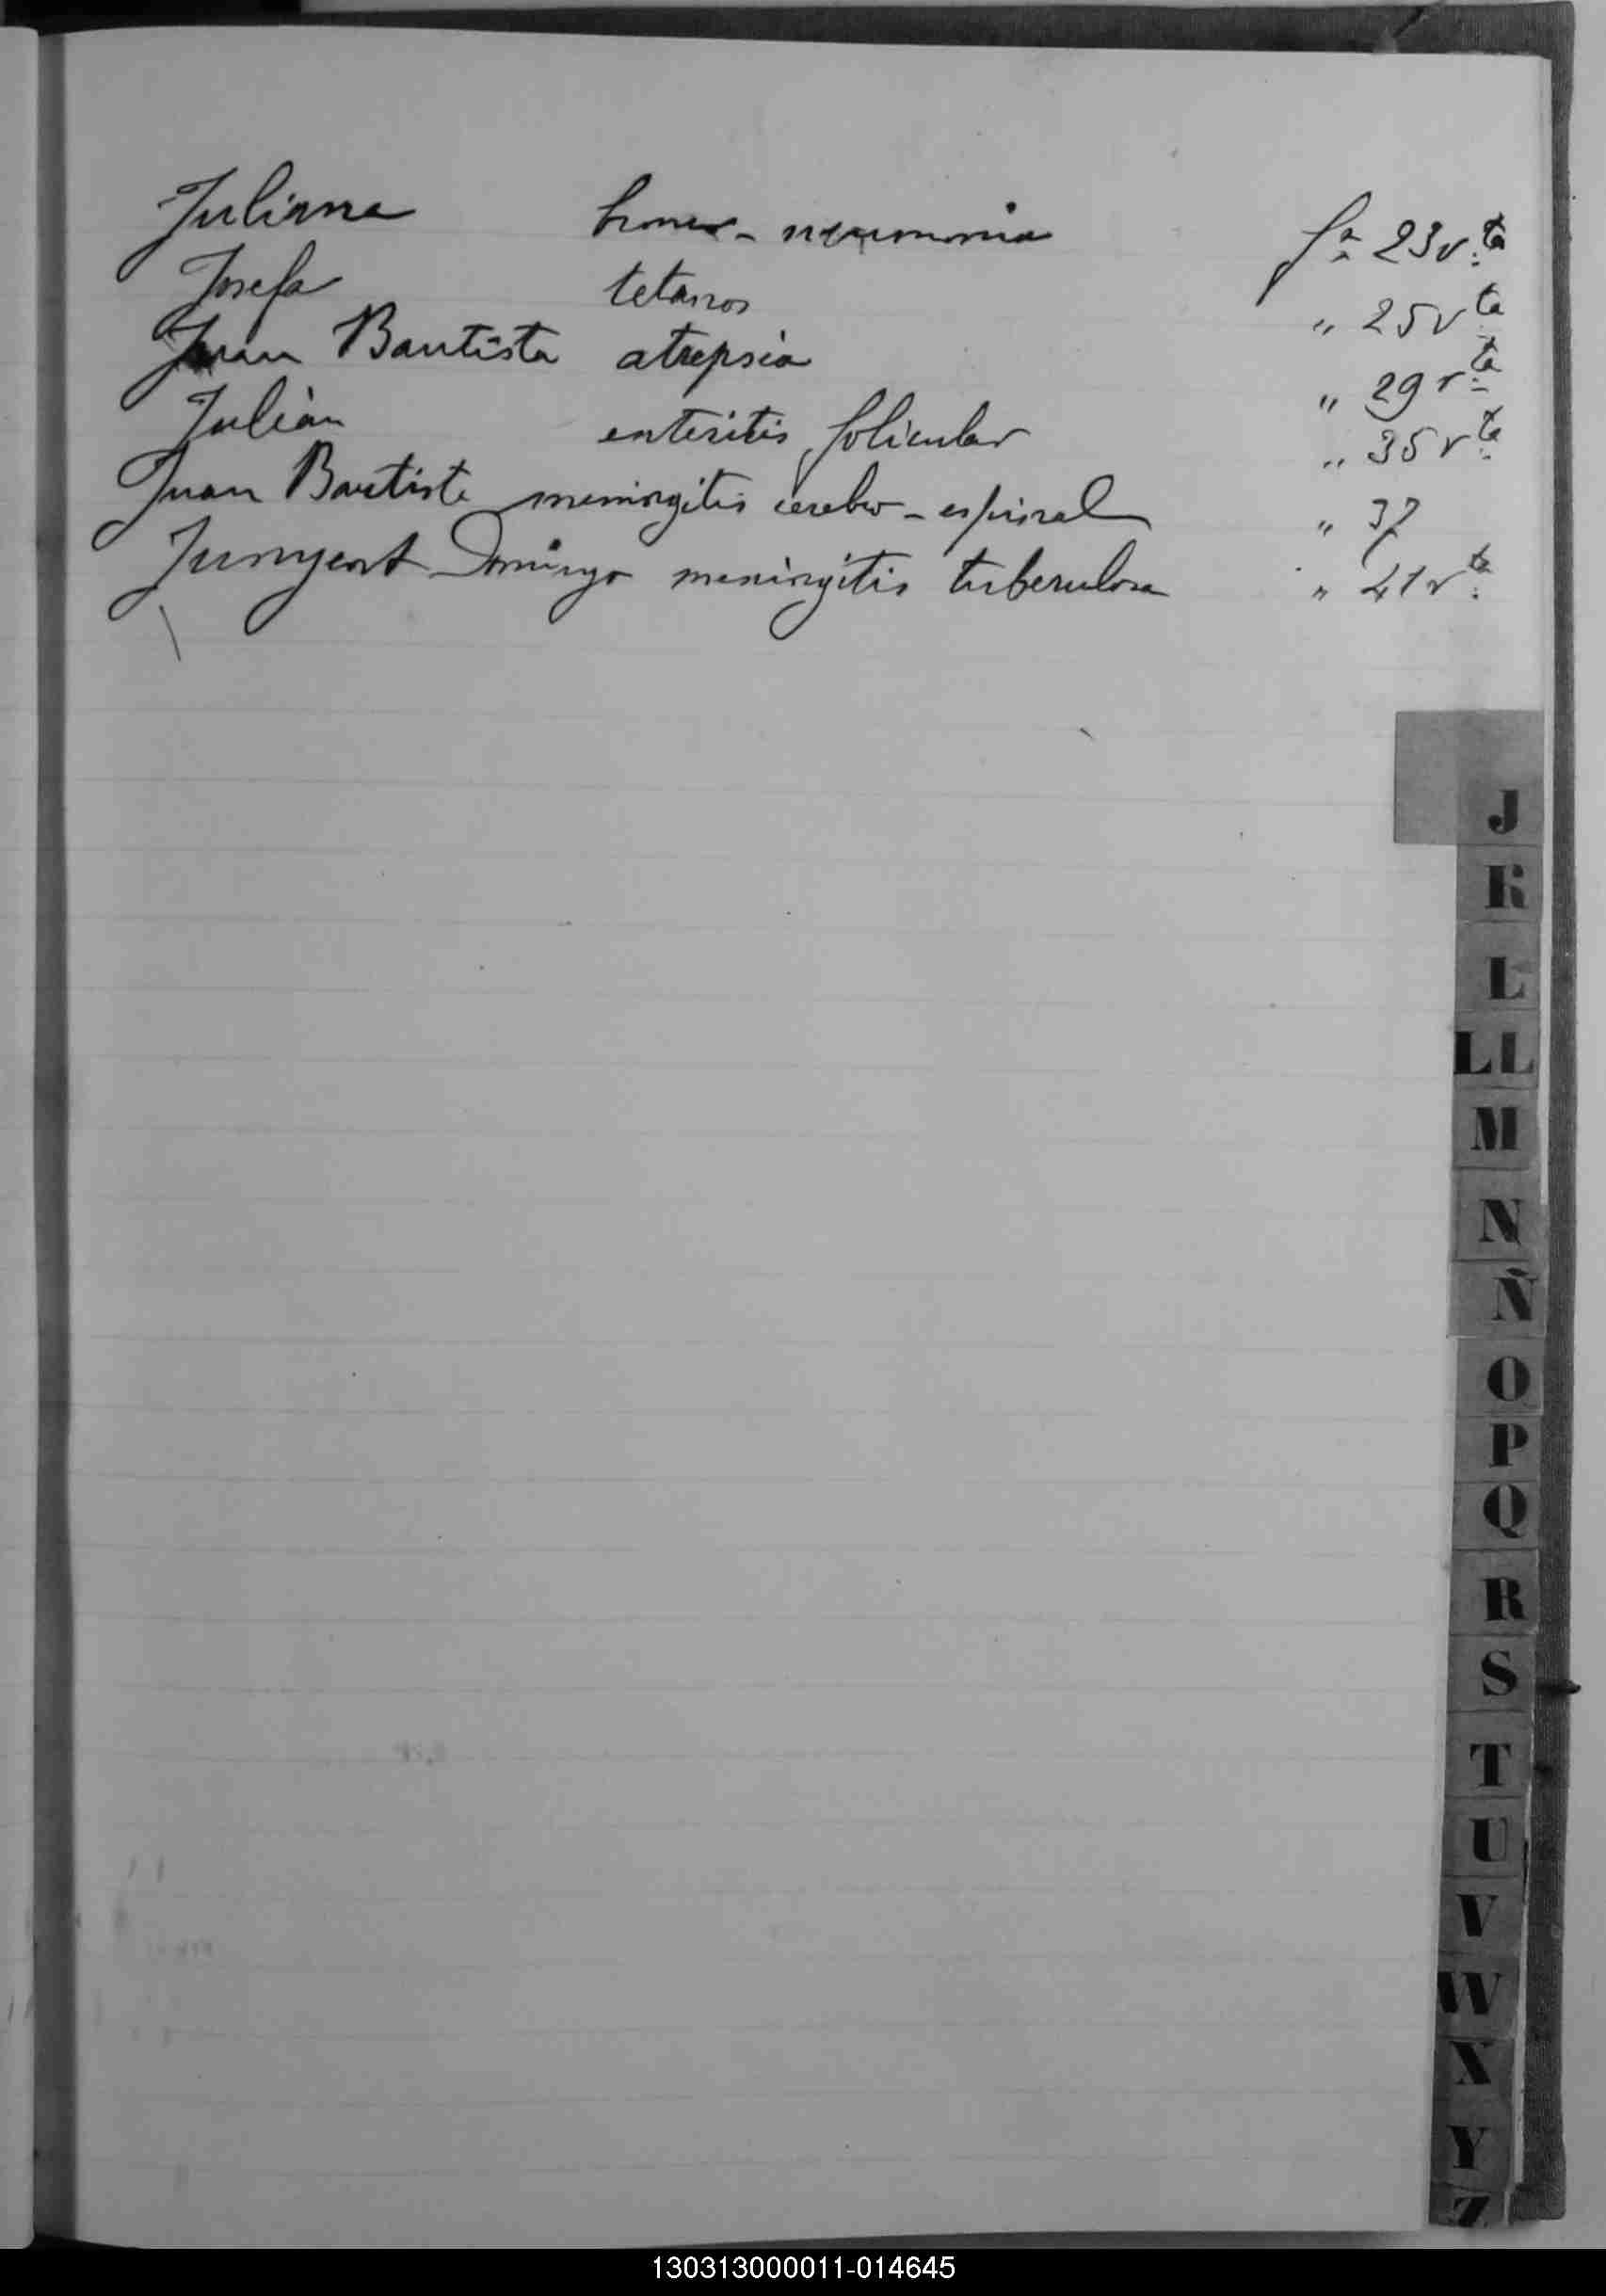 Juliana bronco-neumonia fª 23 v.ta
Josefa tetanos " 25 v ta
Juan Bautista atrepsia " 29 v.ta
Julián enteritis folicular " 35 v.ta
Juan Bautista meningitis cerebro-espinal " 37
Junyent Domingo meningitis tuberculosa " 41 v.ta
J
K
L
LL
M
N
Ñ
O
P
Q
R
S
T
U
V
W
X
Y
Z
130313000011-014645